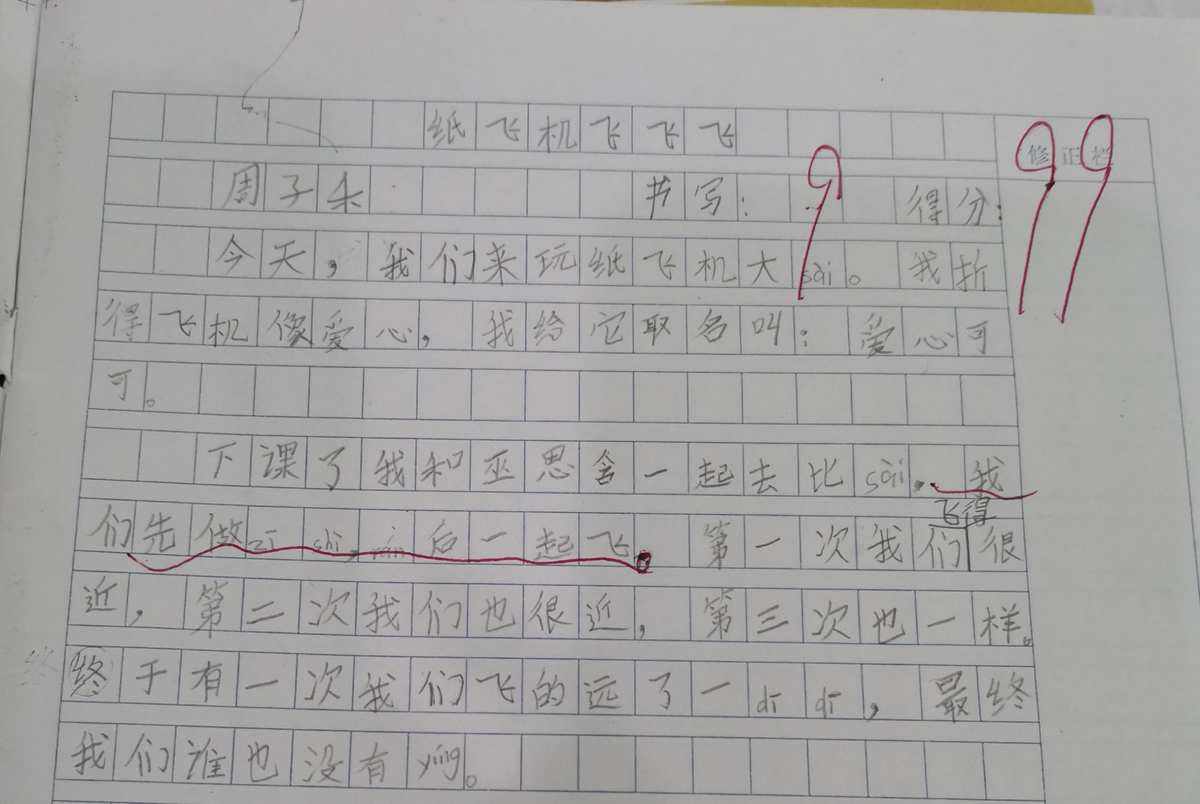 纸飞机飞飞飞
修正栏
99
周子 书写: 9 得分:
今天，我们来玩纸飞机大sài。我折
得飞机像爱心，我给它取名叫：爱心可
可。
下课了我和巫思含一起去比sài，我
飞得
们先做zī shì，rán后一起飞。第一次我们很
近，第二次我们也很近，第三次也一样。
终于有一次我们飞的远了一dī dī，最终
我们谁也没有yíng。